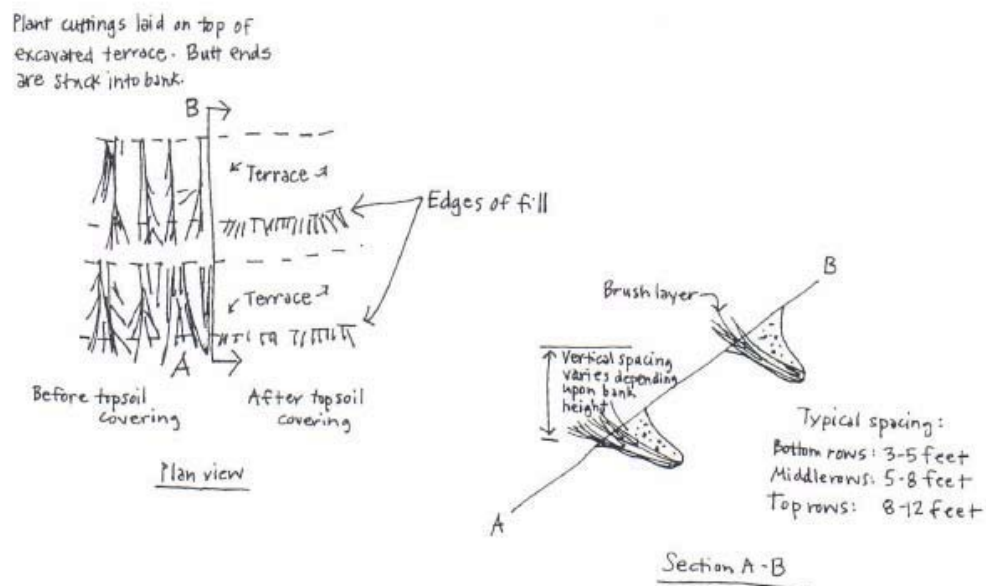 Plant cuttings laid on top of
excavated terrace. Butt ends
are stuck into bank.
B
Terrace
Edges of fill
Terrace
A
Before topsoil
covering
After topsoil
covering
Plan view
B
Brush layer
Vertical spacing
varies depending
upon bank
height
A
Typical spacing:
Bottom rows: 3-5 feet
Middle rows: 5-8 feet
Top rows: 8-12 feet
Section A-B